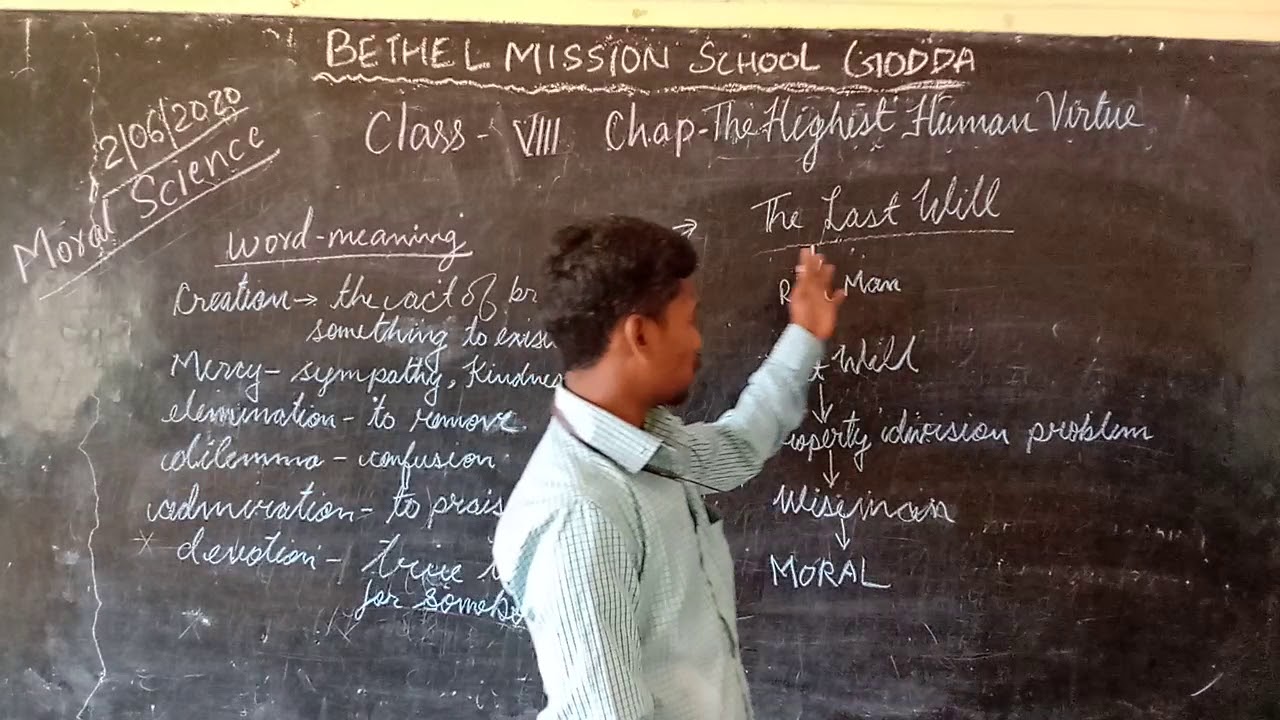 BETHEL MISSION SCHOOL GODDA
2/06/2020
Moral Science
Class - VIII Chap-The Highest Human Virtue
word-meaning
Creation → the act of br
something to exis
Mercy - sympathy, Kindnes
elemination - to remove
dilemma - confusion
admiration - to prais
* devotion - true
for somebo
→ The Last Will
Man
Will
↓
operty division problem
↓
Wiseman
↓
MORAL